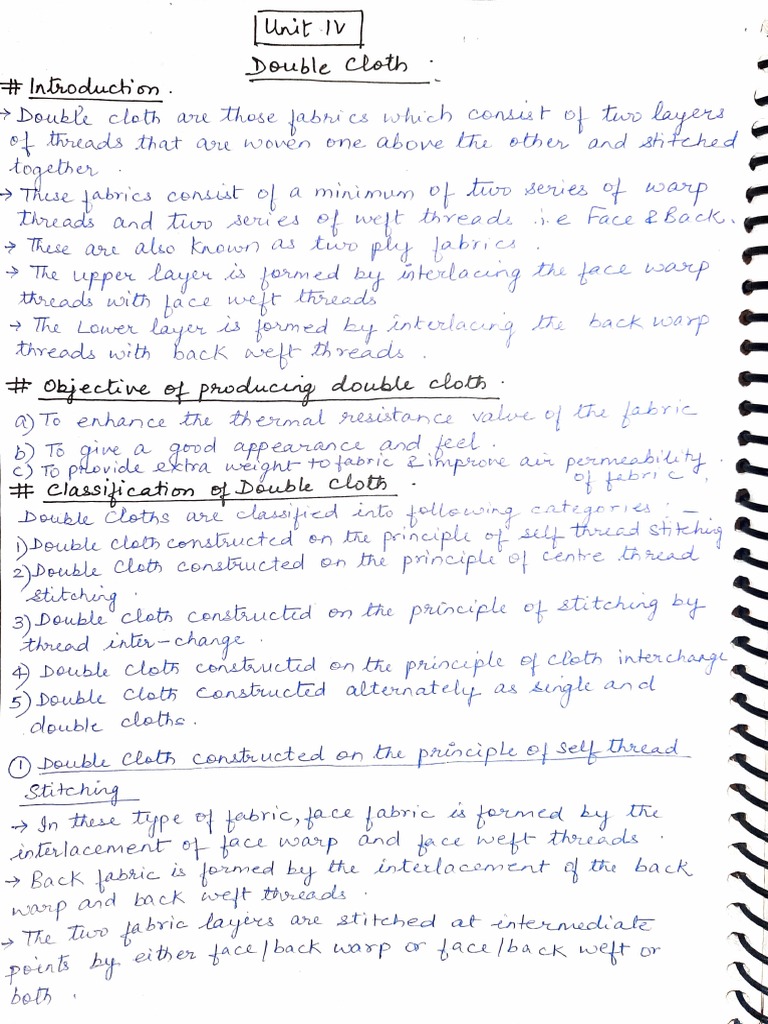 Unit IV
Double Cloth :
# Introduction .
→ Double cloth are those fabrics which consist of two layers
of threads that are woven one above the other and stitched
together .
→ These fabrics consist of a minimum of two series of warp
threads and two series of weft threads i.e Face & Back.
→ These are also known as two ply fabrics .
→ The upper layer is formed by interlacing the face warp
threads with face weft threads
→ The Lower layer is formed by interlacing the back warp
threads with back weft threads .
# Objective of producing double cloth .
a) To enhance the thermal resistance value of the fabric
b) To give a good appearance and feel .
c) To provide extra weight to fabric & improve air permeability .
of fabric .
# Classification of Double Cloth .
Double Cloths are classified into following categories : –
1) Double cloth constructed on the principle of self thread stitching
2) Double Cloth constructed on the principle of centre thread
stitching .
3) Double Cloth constructed on the principle of stitching by
thread inter-change .
4) Double Cloth constructed on the principle of cloth interchange
5) Double Cloth constructed alternately as single and
double cloths .
① Double Cloth constructed on the principle of self thread
Stitching
→ In these type of fabric, face fabric is formed by the
interlacement of face warp and face weft threads .
→ Back fabric is formed by the interlacement of the back
warp and back weft threads .
→ The two fabric layers are stitched at intermediate
points by either face/back warp or face/back weft or
both .